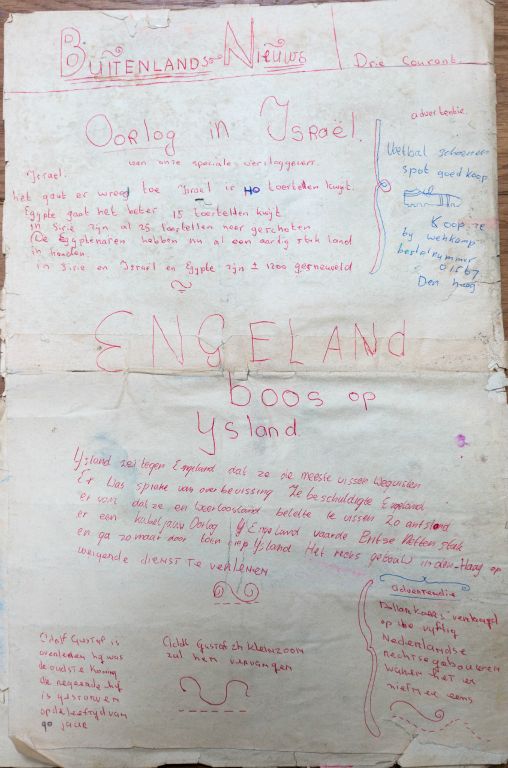 BUITENLANDS NIEUWS
Drie Courant.
OORLOG in ISRAËL.
van onze speciale verslaggever.
Israel.
het gaat er wreed toe Israel is 40 toestellen kwijt.
Egypte gaat het beter 15 toestellen kwijt
in Sirie zijn al 25 toestellen neer geschoten
De Egyptenaren hebben nu al een aardig stuk land
in handen
in Sirie en Israel en Egypte zijn ± 1200 gesneuveld
advertentie.
Voetbal schoenen
spot goed koop
Koop ze
by wehkamp
bestelnummer
01567
Den haag
ENGELAND
boos op
Ysland.
Ysland zei tegen Engeland dat ze de meeste vissen wegvisten
Er was sprake van overbevissing Ze beschuldigte Engeland
er van dat ze en Weerloosland belette te vissen Zo ontstond
er een kabeljauw Oorlog Engeland vaarde Britse Netten stuk
en ga zo maar door Ysland Het rechs gebouw in den-Haag op
weigende dienst te verlenen
Adolf Gustaf is
overleden hy was
de oudste koning
die regeerde hy
is gestorven
op de leeftyd van
90 jaar
Gustaf zn kleinzoon
zal hem vervangen
advertendie
verkoopt
op the vyftig
Nederlandse
rechtsgebouwen
waren het er
niet mee eens